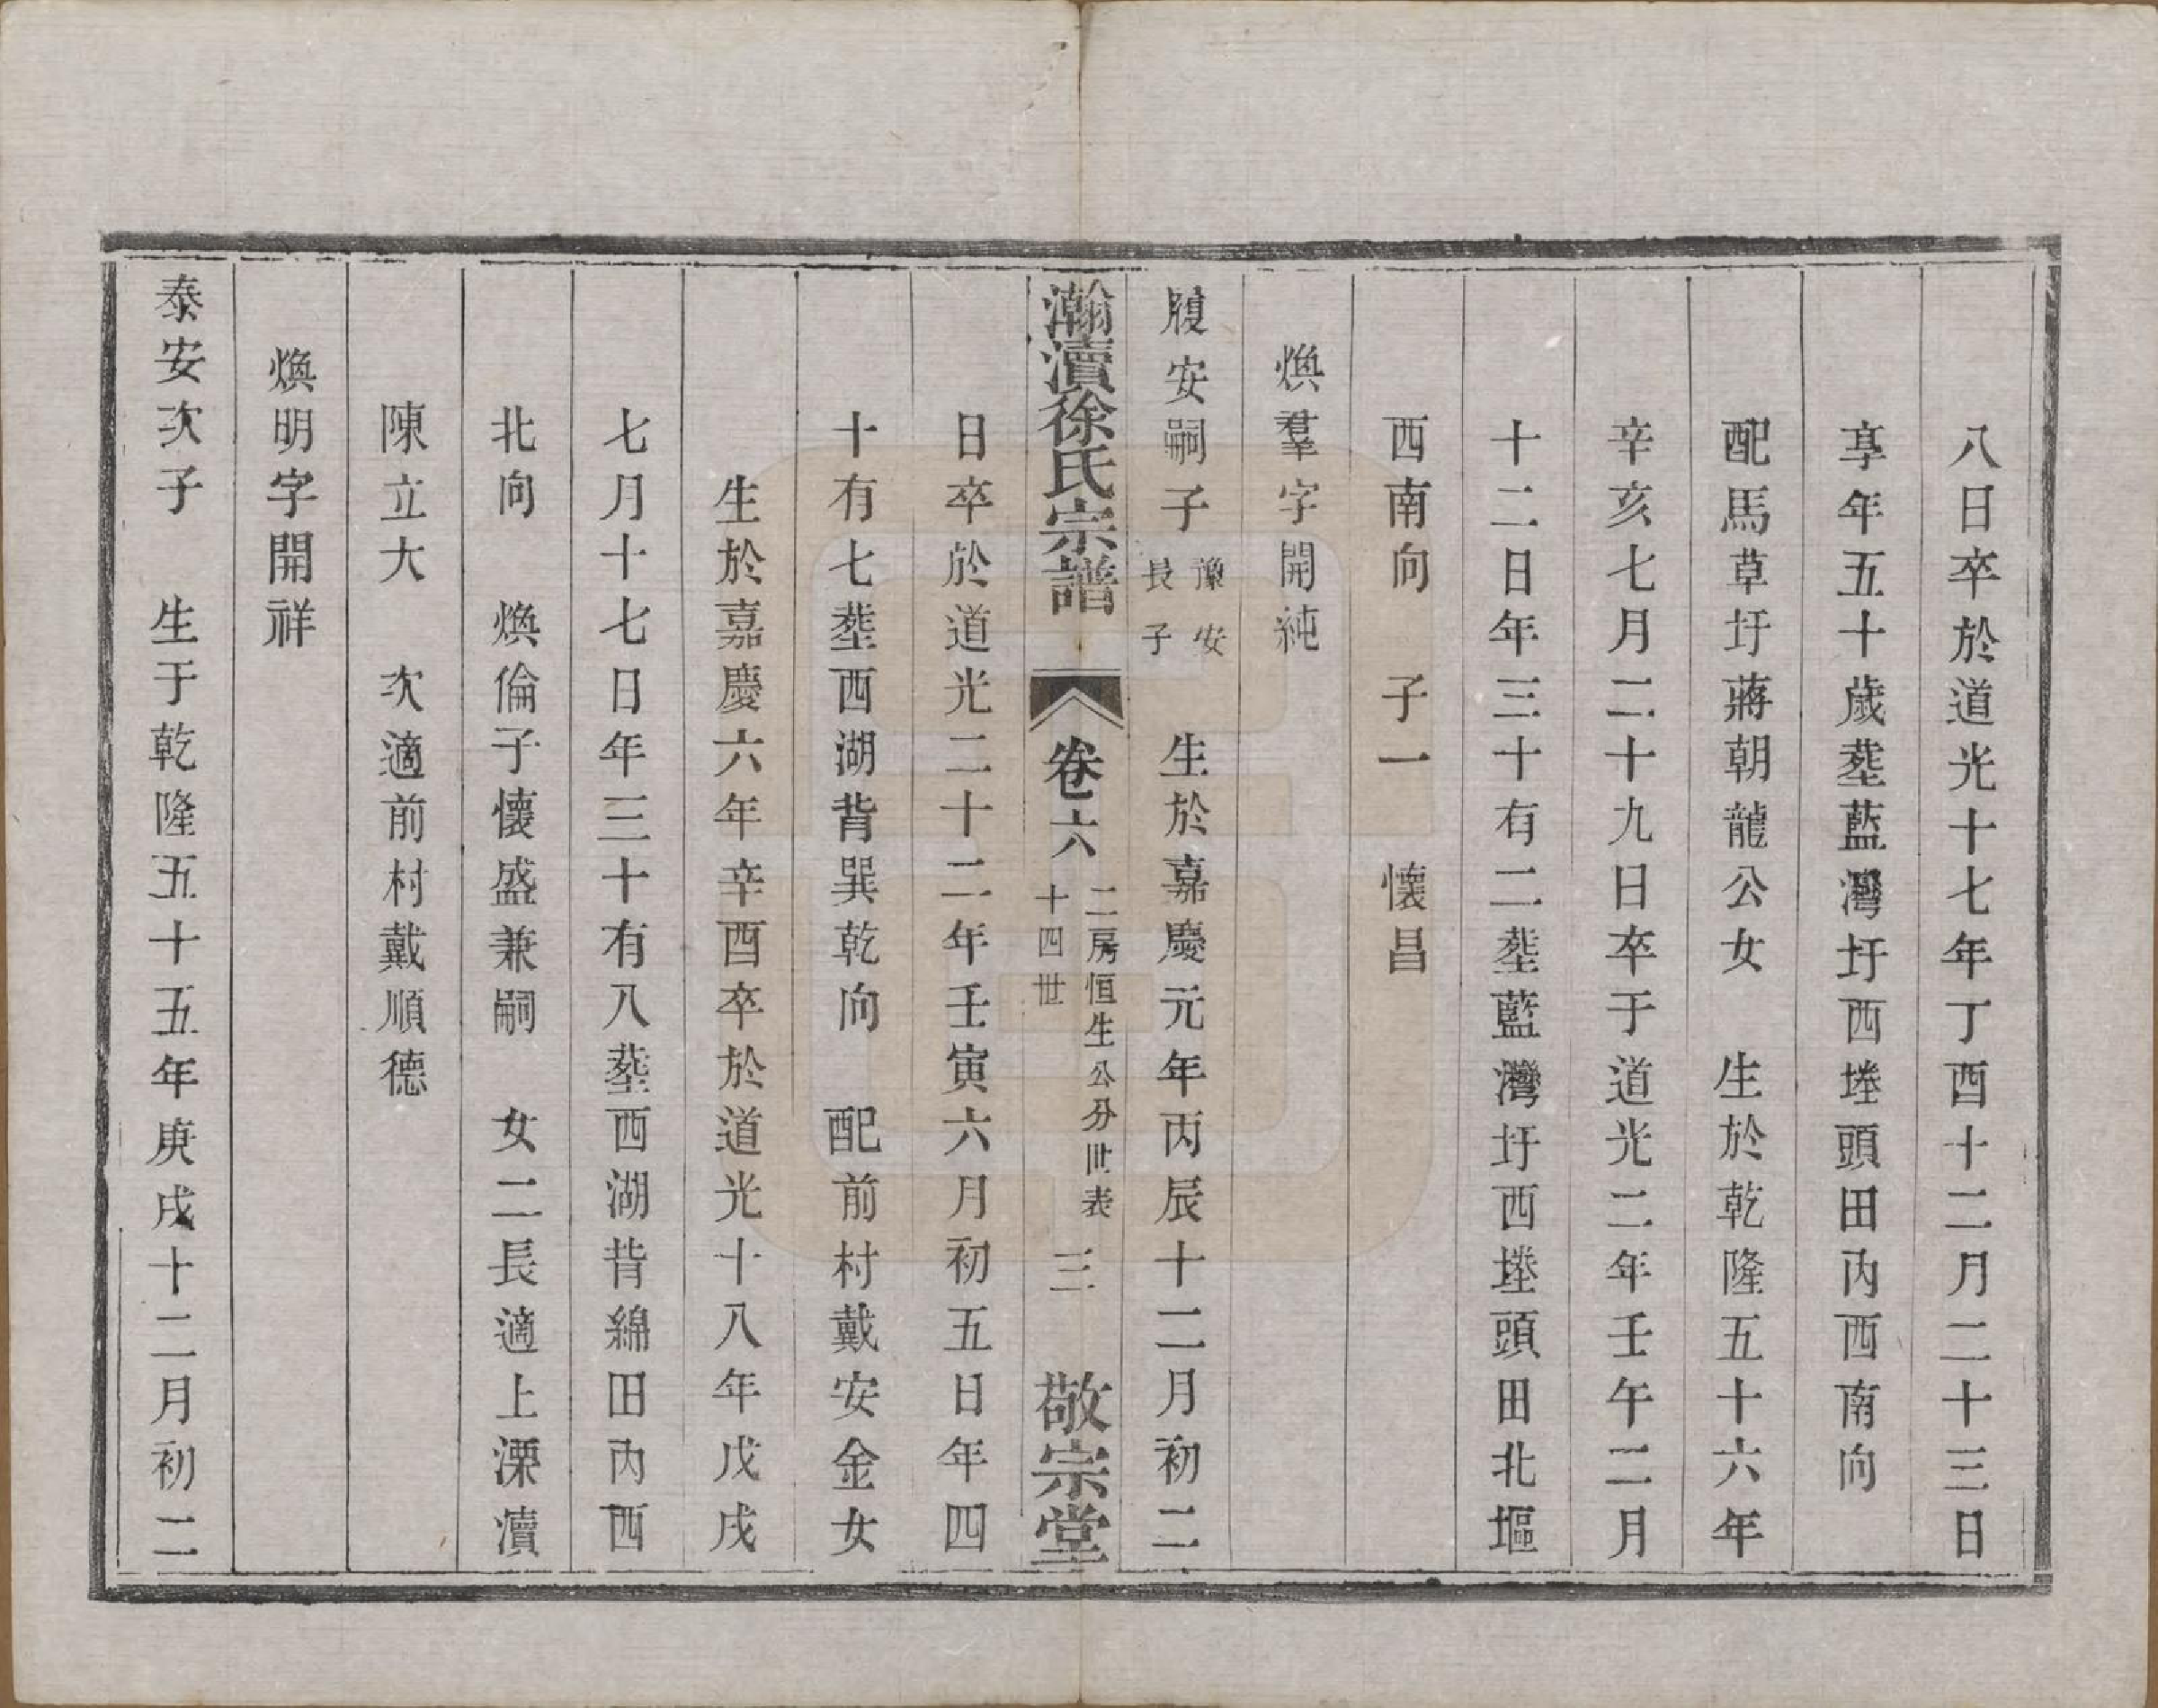 八日卒於道光十七年丁酉十二月二十三日
享年五十歲塟藍灣圩西埂頭田內西南向
配馬草圩蔣朝龍公女　生於乾隆五十六年
辛亥七月二十九日卒于道光二年壬午二月
十二日年三十有二塟藍灣圩西埂頭田北堰
西南向　子一　懷昌
煥羣字開純
履安嗣子　豫安長子　生於嘉慶元年丙辰十二月初二
瀚瀆徐氏宗譜　卷六　二房恒生公分世表　十四世　三　敬宗堂
日卒於道光二十二年壬寅六月初五日年四
十有七塟西湖背巽乾向　配前村戴安金女
生於嘉慶六年辛酉卒於道光十八年戊戌
七月十七日年三十有八塟西湖背綿田內西
北向　煥倫子懷盛兼嗣　女二長適上溧瀆
陳立大　次適前村戴順德
煥明字開祥
泰安次子　生于乾隆五十五年庚戌十二月初二